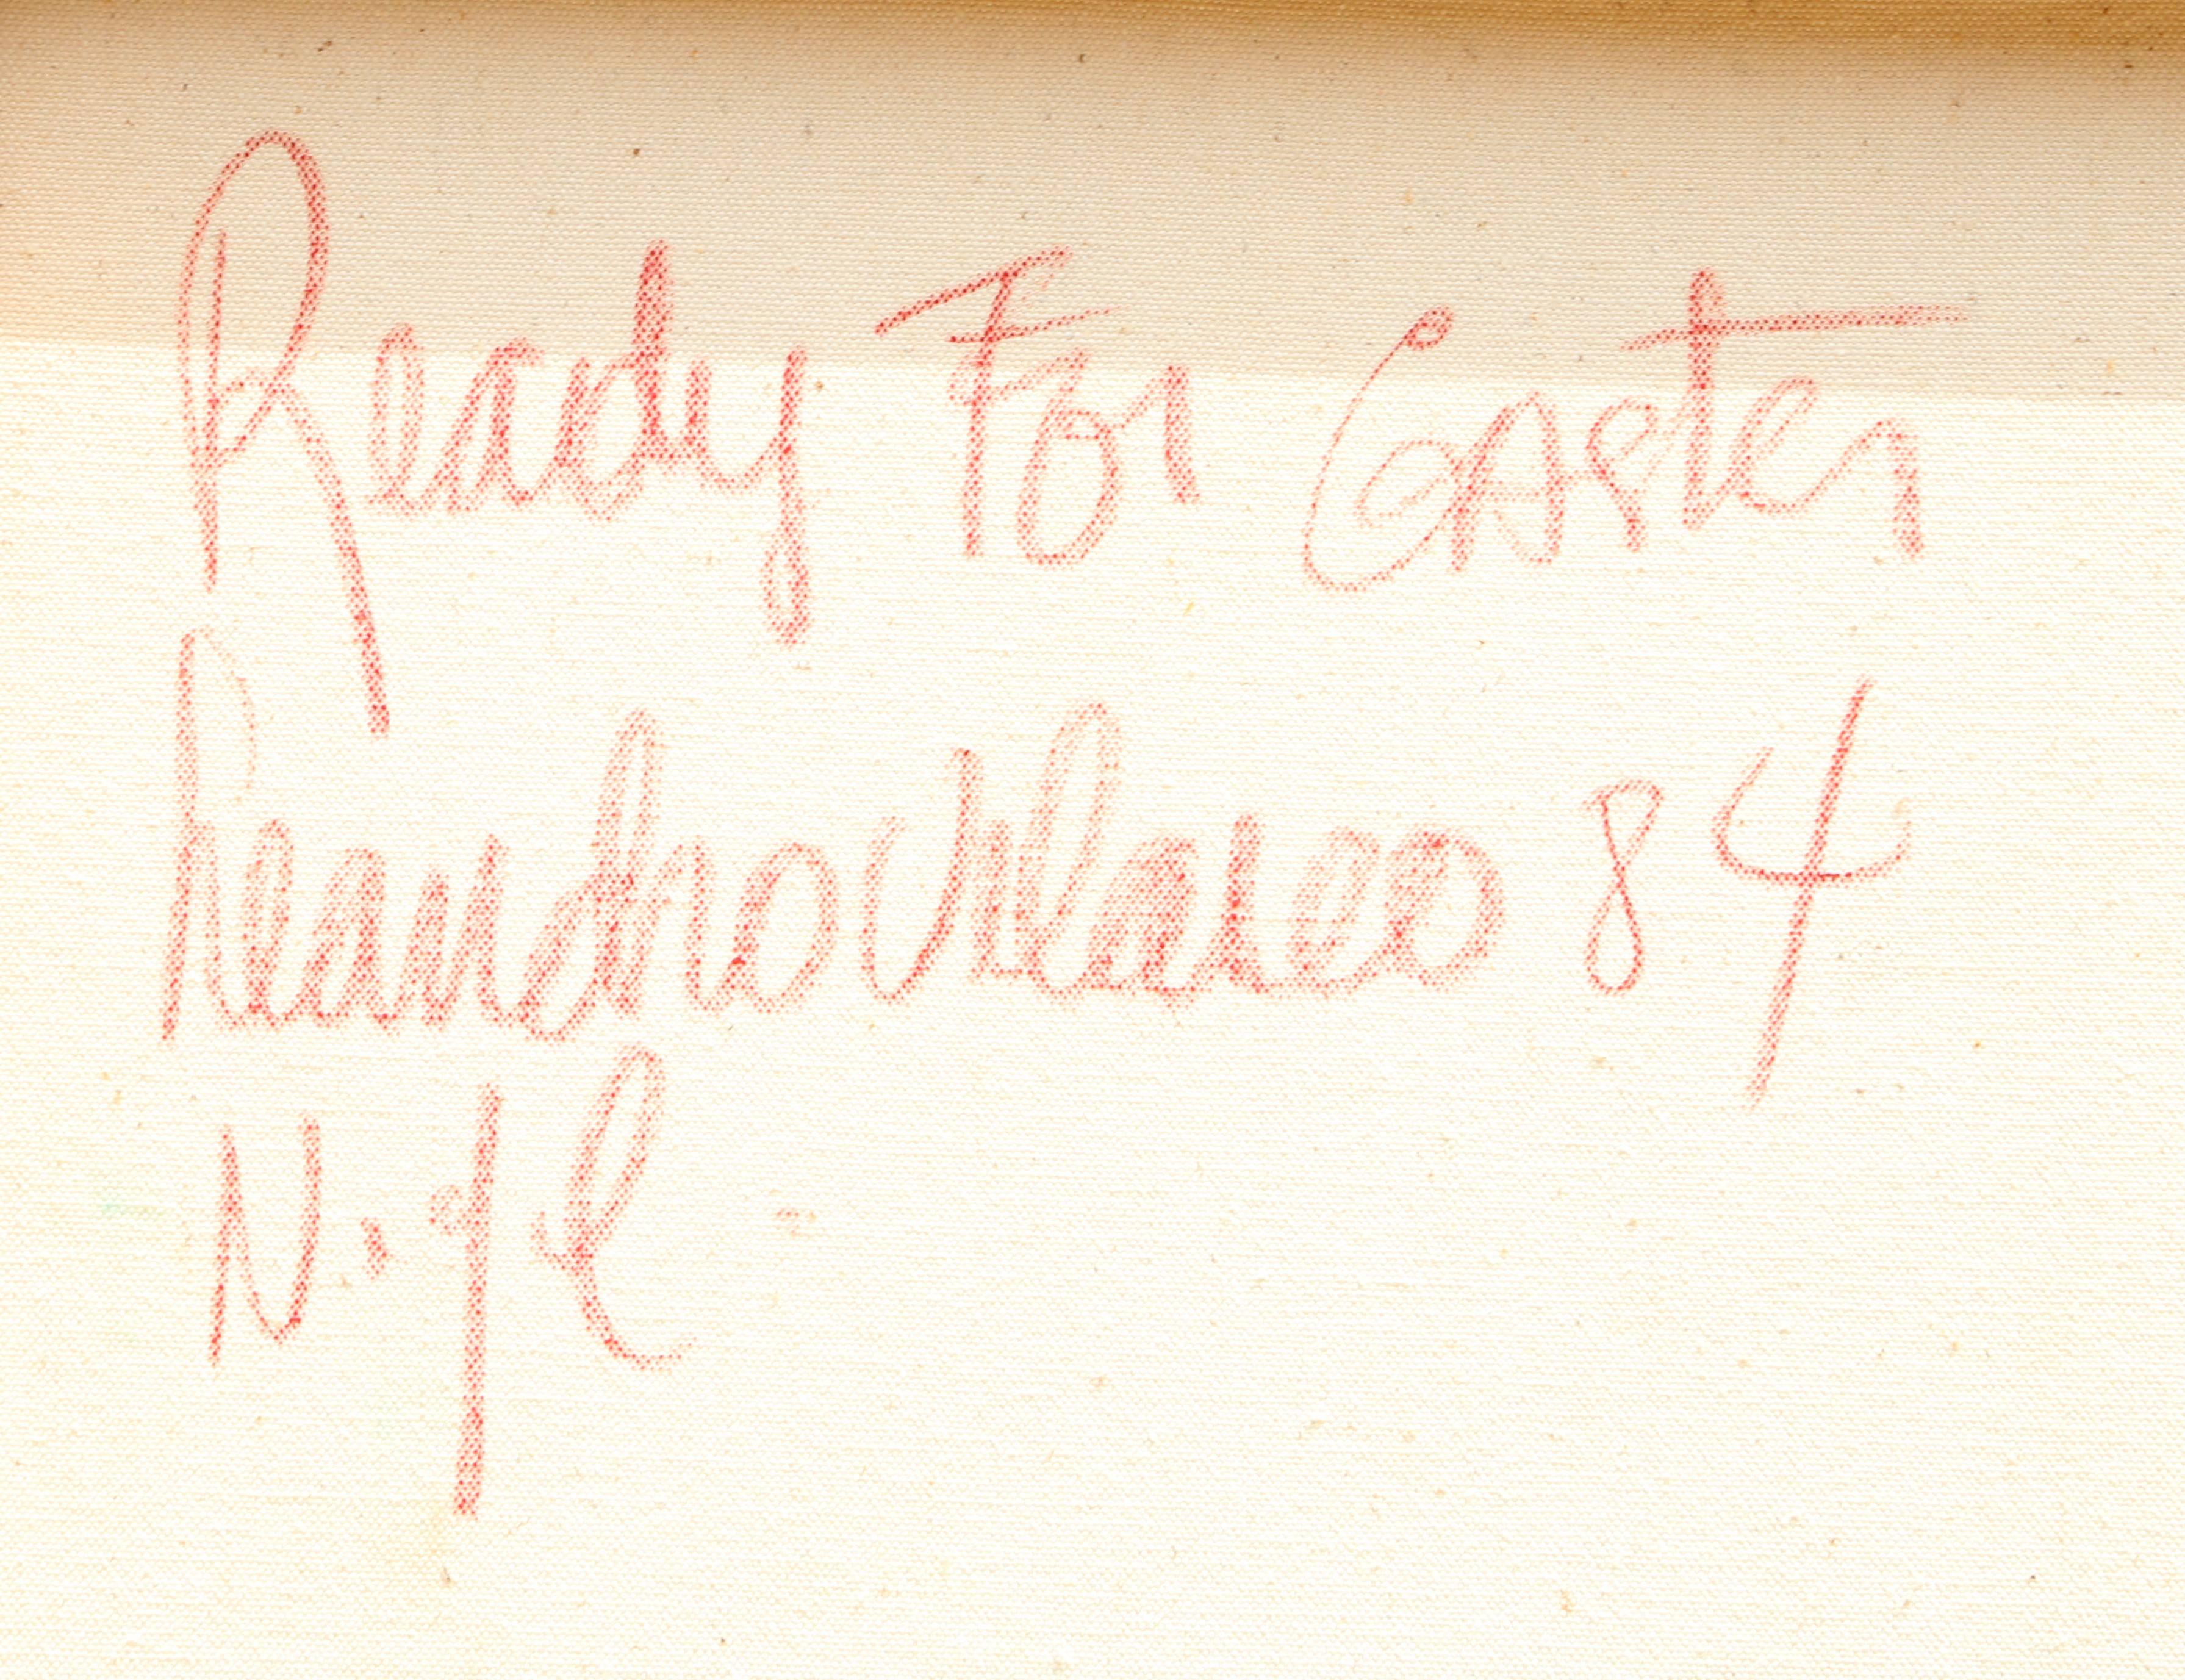 Ready For Easter
Leandro Velasco 84
N.YC